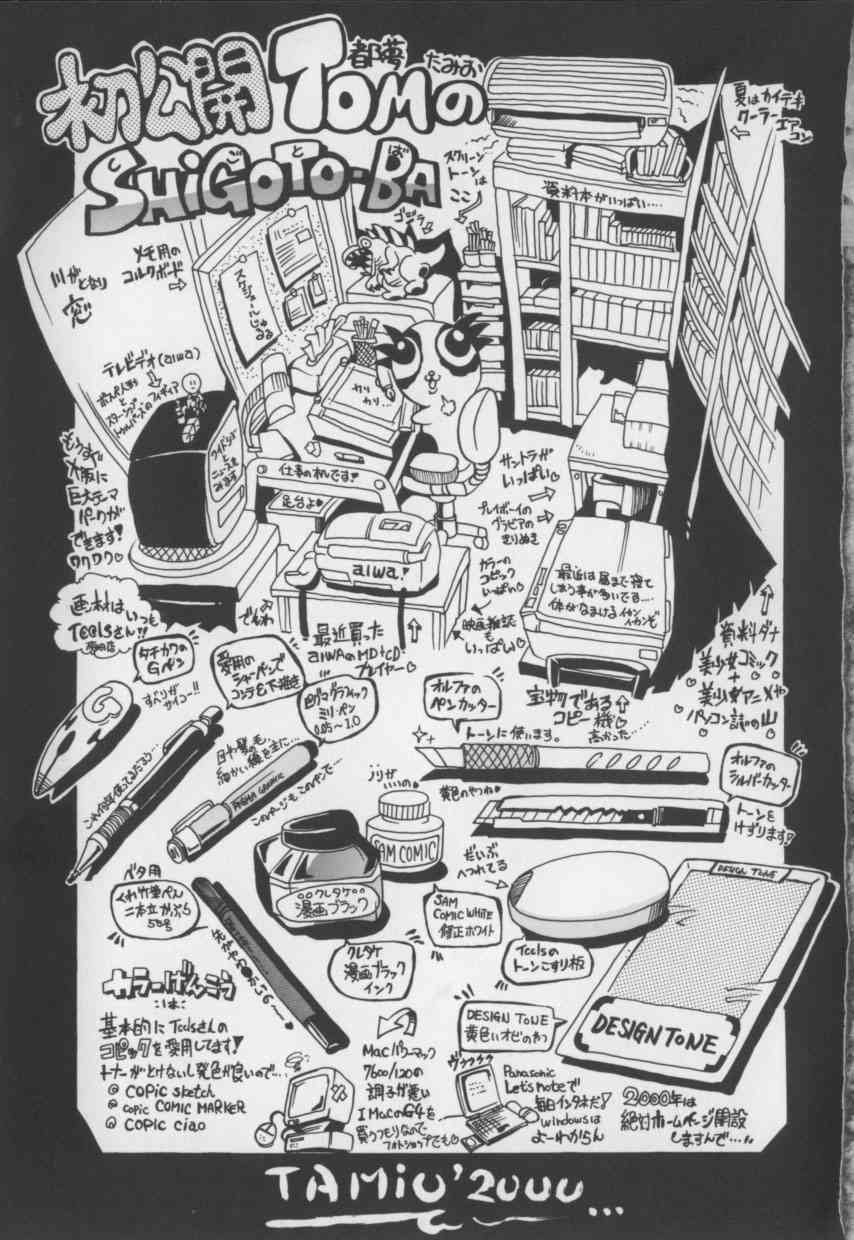 初公開 TOMの
都夢 たみお
SHiGOTO-BA
しごとば
夏はカイテキ
クーラーエアコン
スクリーン
トーンは
ここ
資料本がいっぱい・・・・
ゴジラ
メモ用の
コルクボード
川がとなり
窓
スケジュール
テレビデオ(aiwa)
カリ
カリ・・・
仕事の机です!
足台よ♡
aiwa!
もうすぐ
大阪に
巨大テーマ
パークが
できます!
ワクワク♡
サントラが
いっぱい♡
プレイボーイの
グラビアの
きりぬき
カラーの
コピック
いっぱい♡
映画雑誌
も
いっぱい♡
最近は昼まで寝て
しまう事が多いです・・・・
体がなまけるイカン
イカンぞ
資料ダナ
美少女コミック
+
美少女アニメや
パソコン誌の山
おでんわ
最近買った
aiWAのMD+CD
プレイヤー♡
宝物である
コピー機♡
高かった・・・・・
画材は
いつも
Toolsさん!!
タチカワの
Gペン
すべりが
サイコー!!
愛用の
シャーペンで
コンテ&下描き
ピグマグラフィック
ミリ・ペン
0.05~1.0
目や髪の毛、
細かい線を主に・・・
このページもこのペンで・・・
PIGMA GRAPHIC
オルファの
ペンカッター
トーンに使います。
オルファの
シルバーカッター
トーンを
けずります!
黄色のやつね♡
ノリが
いいの♡
SAM COMIC
クレタケ
漫画ブラック
SAM
COMIC WHITE
修正ホワイト
だいぶ
へつれてる
Toolsの
トーンこすり板
DESIGN TONE
DESIGN TONE
DESIGN TONE
黄色いオビのやつ
ベタ用
くれ竹筆ぺん
二本立かぶら
55号
クレタケ
漫画ブラック
インク
カラーげんこう
は
基本的にToolsさんの
コピックを愛用してます!
トナーがとけないし発色が良いので・・・・
@ COPiC sketch
@ copic COMIC MARKER
@ COPIC ciao
Macパワーマック
7600/120の
調子が悪い
I MacかG4を
買うつもりなので
フォトショップでも♡
ヴヴヴヴヴ
Panasonic
Let's noteで
毎日インタネだ!
windowsは
よーわからん
2000年は
絶対ホームページ開設
しますんで・・・
TAMiO '2000...